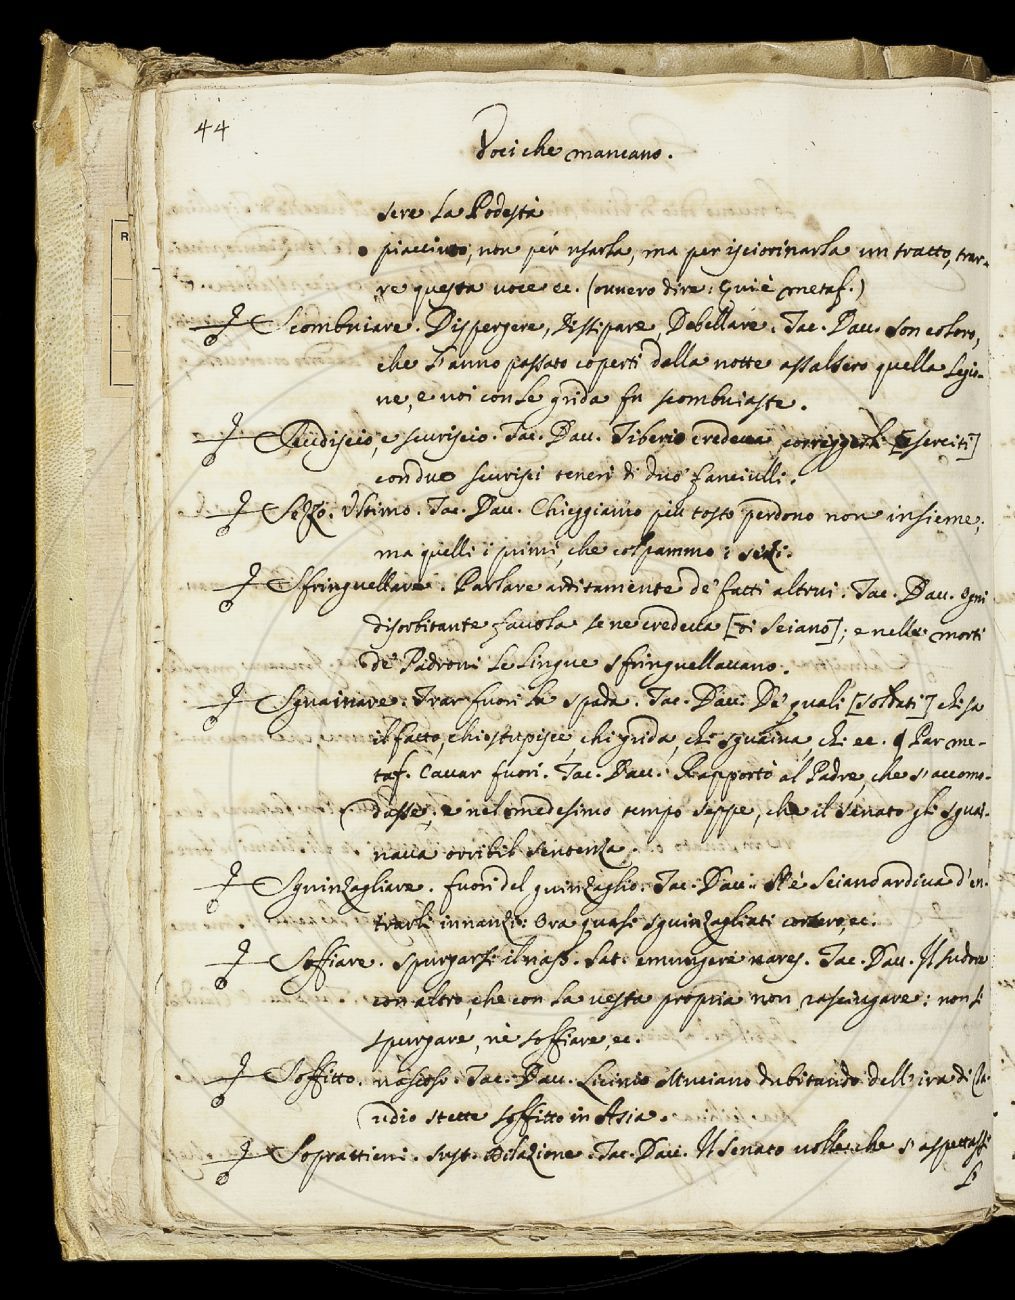 44
Voci che mancano.
sere la Podestà
piacciuto; non per usarla, ma per isciorinarla un tratto, trar-
re questa voce ec. (ovvero dire: Qui è metaf.)
Scombuiare. Dispergere, Dissipare, Debellare. Tac. Dav. Son coloro,
che l'anno passato coperti dalla notte assalsero quella legio-
ne, e voi con le grida fu scombuiaste.
Scudiscio, e scuriscio. Tac. Dav. Tiberio credeva correggerli [eserciti]
con due scurisci teneri di duo fanciulli.
Sezzo. Ultimo. Tac. Dav. Chieggiamo più tosto perdono non insieme;
ma quelli i primi, che colpammo i sezzi.
Sfringuellare. Parlare arditamente de' fatti altrui. Tac. Dav. Ogni
disorbitante favola se ne credeva [di Seiano]; e nelle morti
de' Padroni le lingue sfringuellavano.
Sguainare. Trar fuori la spada. Tac. Dav. De' quali [soldati] chi sa
il fatto, chi stupisce, chi grida, chi sguaina, chi ec. Par me-
taf. Cavar fuori. Tac. Dav. Rapportò al Padre, che s'accomo-
dasse; e nel medesimo tempo seppe, che il Senato gli sguai-
nava orribil sentenza.
Sguinzagliare. fuori del guinzaglio. Tac. Dav. Nè Seiano ardiva d'en-
trarli innanzi: Ora quasi sguinzagliati corsero, ec.
Soffiare. Spurgarsi il naso. Lat. emungere nares. Tac. Dav. Il sudore
con altro, che con la vesta propria non rasciugare: non si
spurgare, nè soffiare, ec.
Soffitto. nascoso. Tac. Dav. Licinio Muciano dubitando dell'ira di Cla-
udio stette soffitto in Asia.
Soprattieni. sust. Dilazione. Tac. Dav. Il Senato volle che s'aspettassi